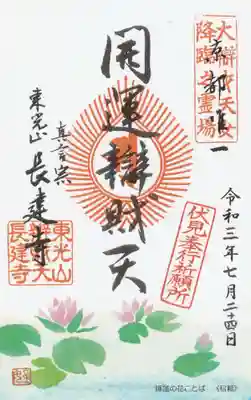 大辯財天女
降臨之霊場
京都唯一
開運辯財天
真言宗
東光山 長建寺
東光山
辯財天
長建寺
伏見奉行祈願所
令和三年七月二十四日
睡蓮の花ことば 《信頼》